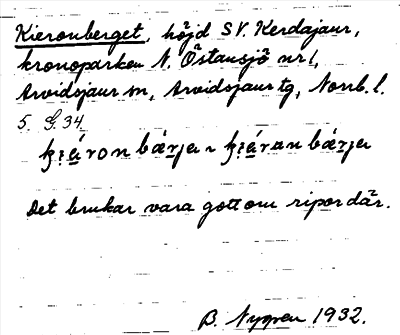 Kieronberget, höjd SV. Kerdajaur,
kronoparken N. Östansjö nr 1,
Arvidsjaur sn, Arvidsjaur tg, Norrb. l.
5. G. 34.
ki̯áron bǽrja ~ ki̯áran bǽrja
Det brukar vara gott om ripor där.
B. Nygren 1932.